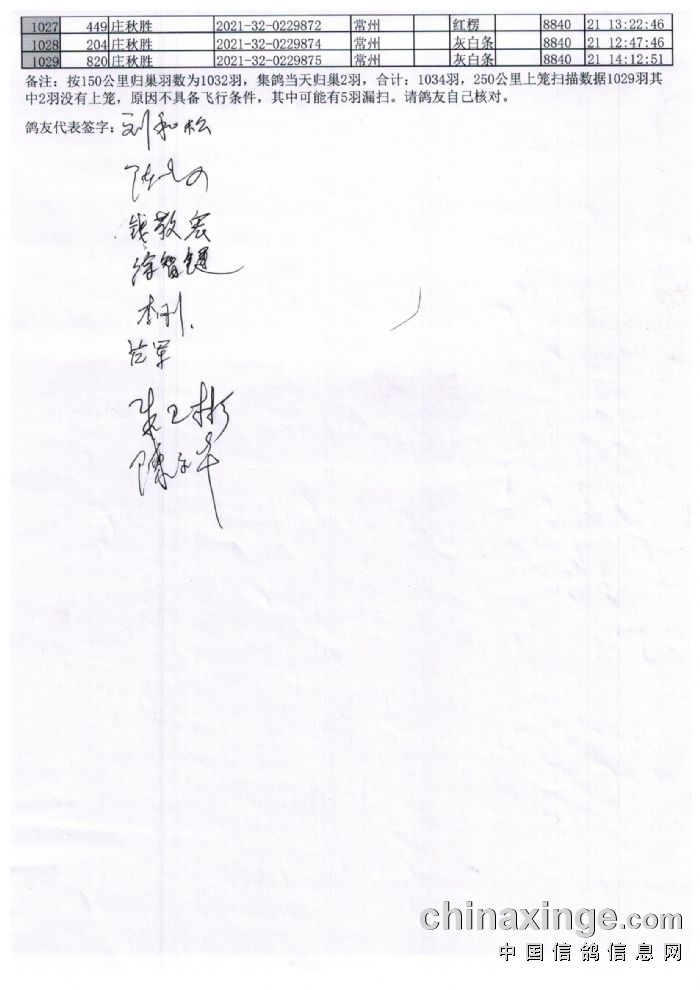 1027 449 庄秋胜 2021-32-0229872 常州 红楞 8840 21 13:22:46
1028 204 庄秋胜 2021-32-0229874 常州 灰白条 8840 21 12:47:46
1029 820 庄秋胜 2021-32-0229875 常州 灰白条 8840 21 14:12:51
备注：按150公里归巢羽数为1032羽，集鸽当天归巢2羽，合计：1034羽，250公里上笼扫描数据1029羽其
中2羽没有上笼，原因不具备飞行条件，其中可能有5羽漏扫。请鸽友自己核对。
鸽友代表签字：刘和松
钱敖宏
徐智键
李刚
范军
朱卫彬
chinaxinge.com
中国信鸽信息网